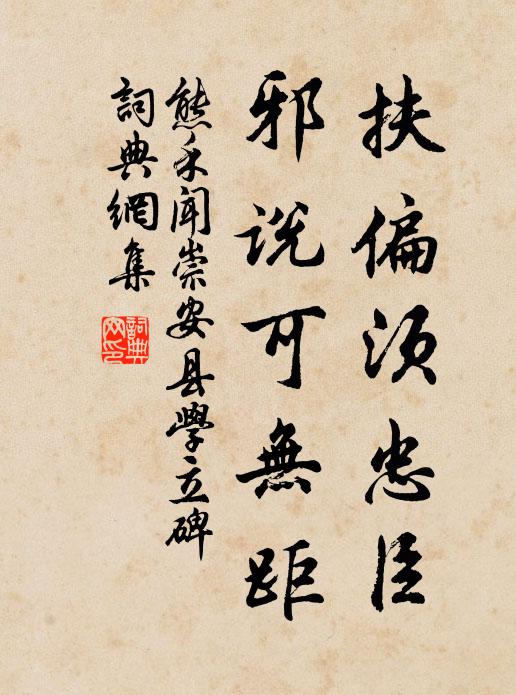 扶偏须忠臣
邪说可無距
熊禾闻崇安县學立碑
詞典網集
詞典網印